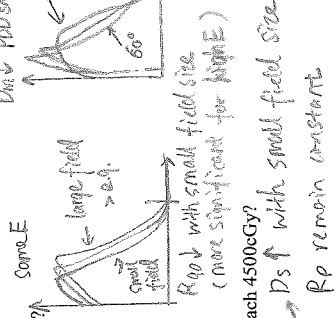 Same E
large field
> eq.
small
field
R90↓ with small field size
(more significant for high E)
ach 4500cGy?
Ds ↑ with small field size
Rp remain constant
60°